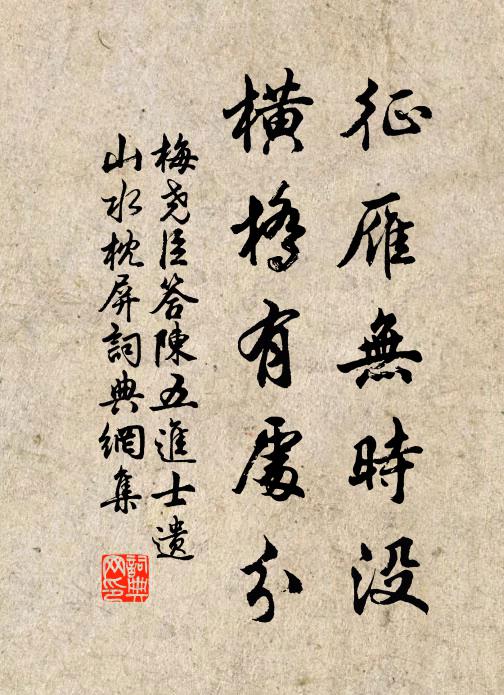 征雁無時没
橫橋有處分
梅堯臣答陳五進士遺
山水枕屏詞典網集
詞典
網印